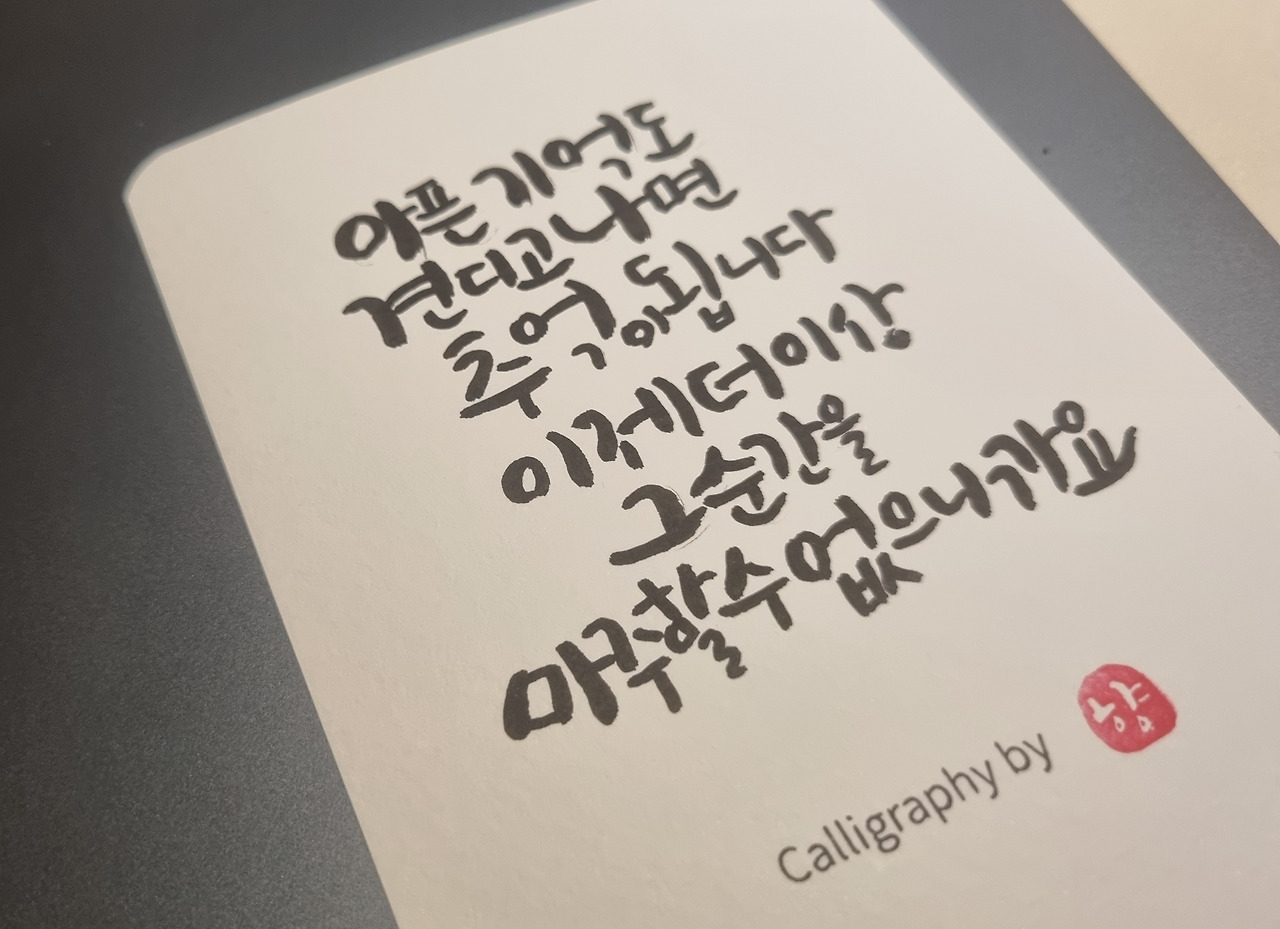 아픈 기억도
견디고 나면
추억이 됩니다
이제 더 이상
그 순간을
마주할 수 없으니까요
Calligraphy by